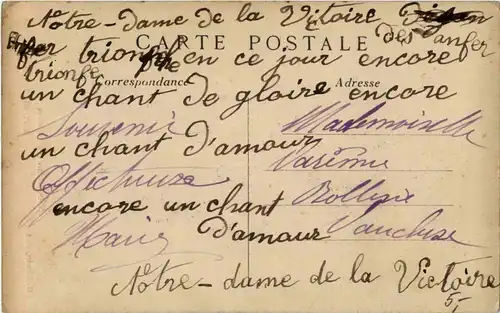 Notre-dame de la Victoire
des anfer
trionfe en ce jour encore
CARTE POSTALE
trionfe
Correspondance
Adresse
un chant de gloire encore
Souvenir
Mademoiselle
un chant d'amour
Affectueux
encore un chant
Marie
d'amour
Vaucluse
Notre-dame de la Victoire
5,-